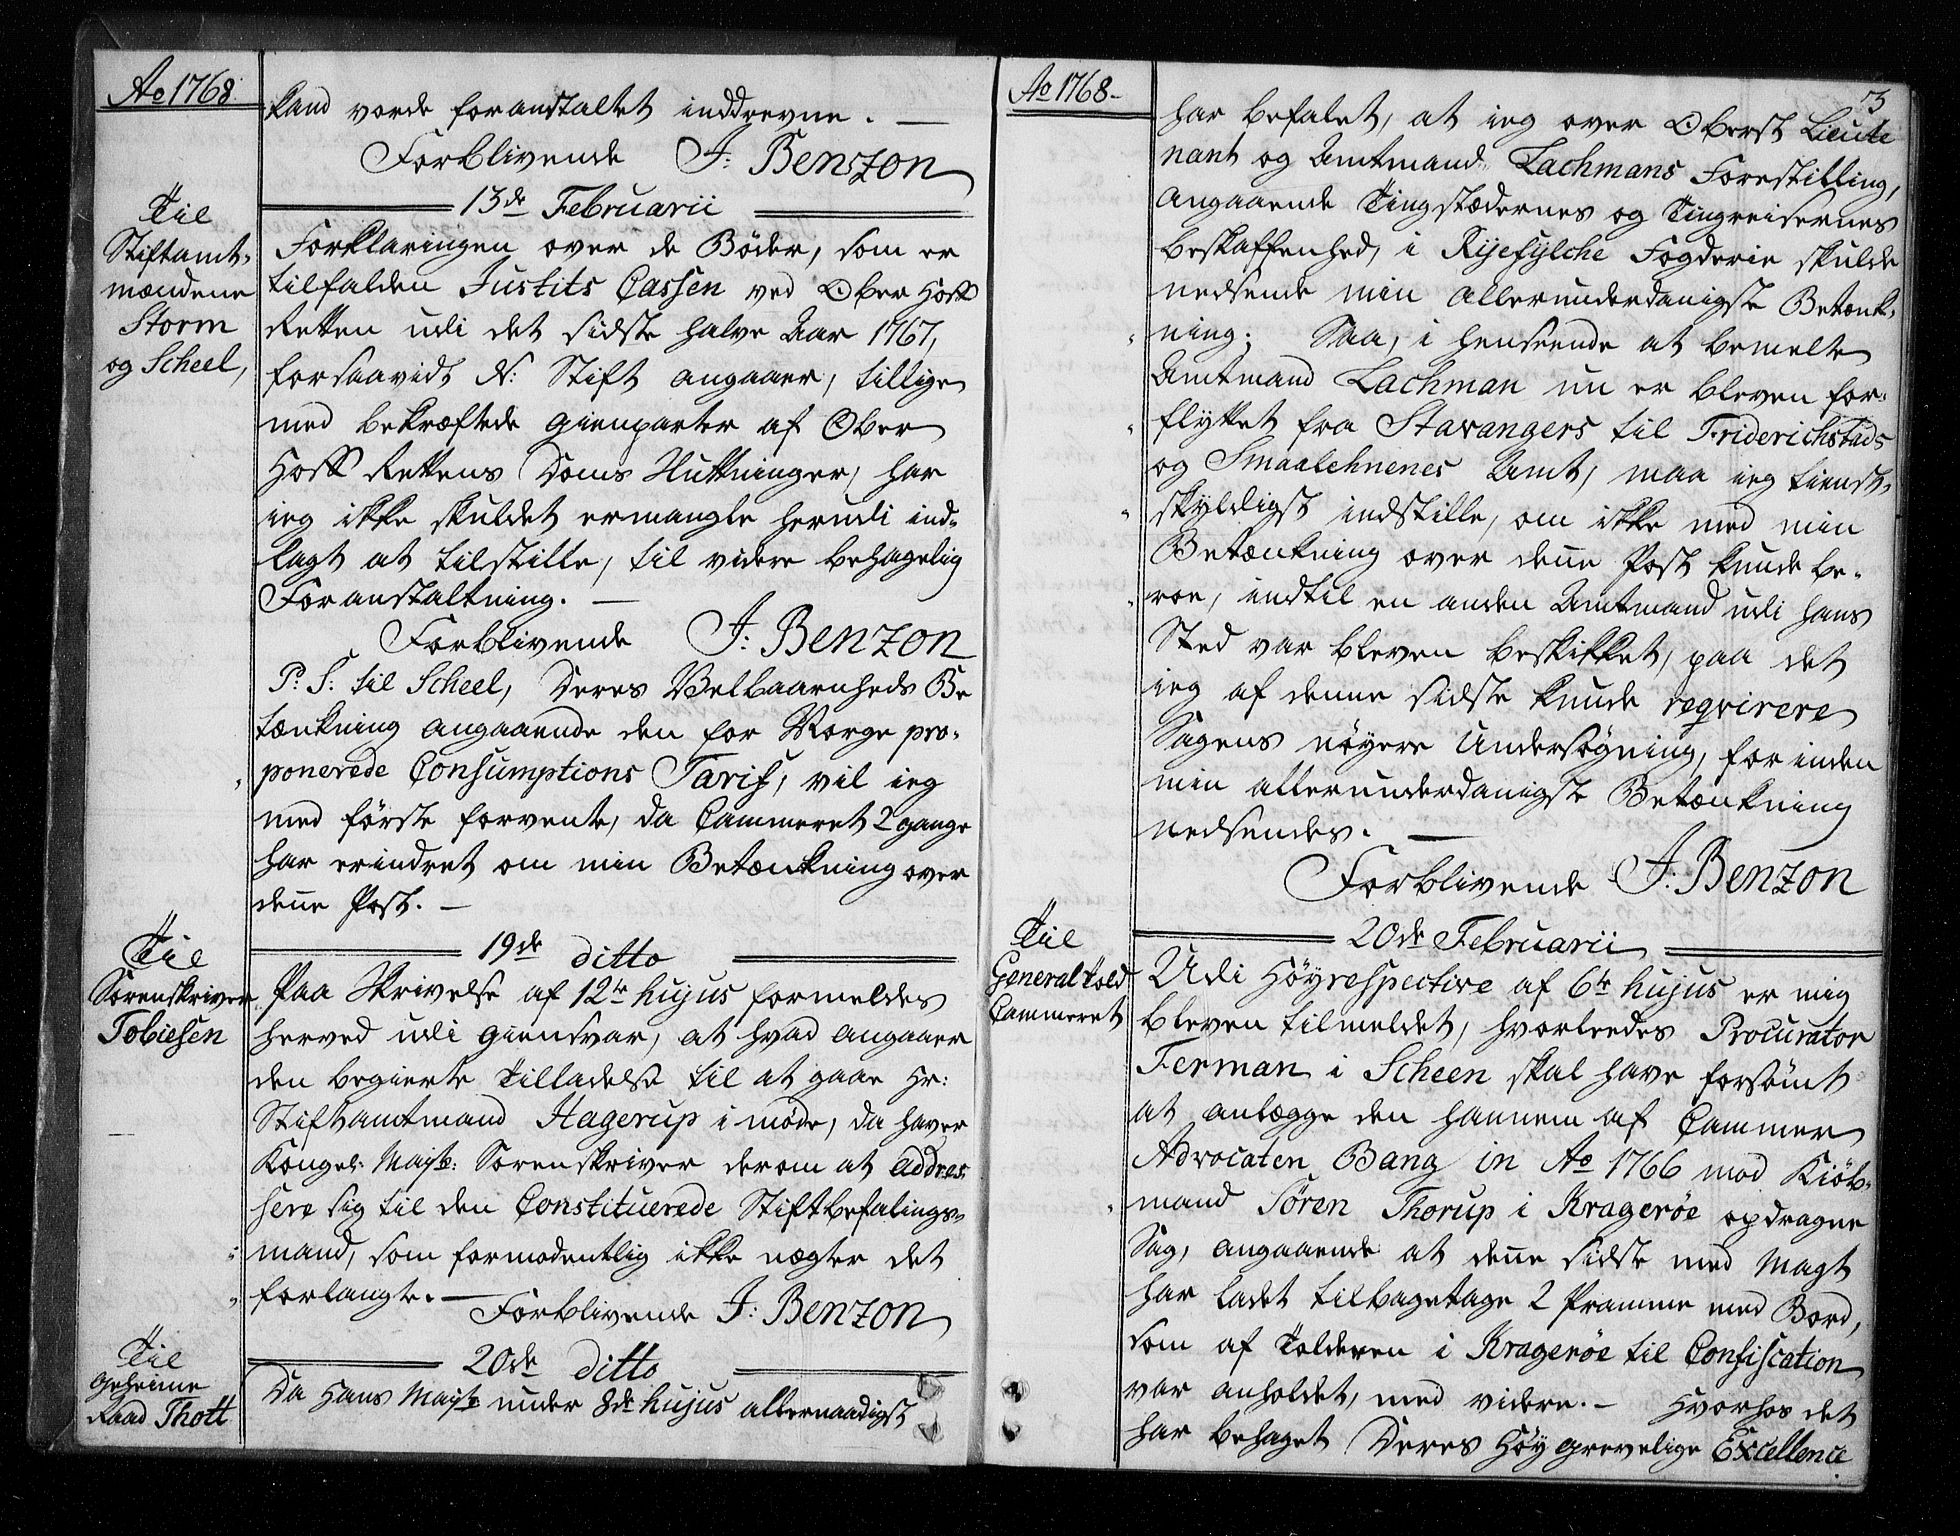 Ao 1768
kand vorde foranstaltet inddrevne. —
Forblivende J: Benzon
13de Februarii
Til
Stiftamt-
mændene
Storm
og Scheel,
Forklaringen over de Bøder, som er
tilfalden Justits Cassen ved Ober Hoff
Retten udi det sidste halve Aar 1767,
forsaavidt N: Stift angaaer, tillige
med bekræftede gienparter af Ober
Hoff Rettens Doms Slutninger, har
ieg ikke skuldet ermangle herudi ind-
lagt at tilstille, til videre behagelig
Foranstaltning. —
Forblivende J: Benzon
P: S: til Scheel, Deres Velbaarnheds Be
tænkning angaaende den for Norge pro-
ponerede Consumptions Tarif, vil ieg
med første forvente, da Cammeret 2 gange
har erindret om min Betænkning over
denne Post. —
19de ditto
Til
Sorenskriver
Tobiesen
Paa Skrivelse af 12te hujus formeldes
herved udi giensvar, at hvad angaaer
den begierte Tilladelse til at gaae Hr:
Stiftamtmand Hagerup i møde, da haver
Kongel: Mayts: Sorenskriver derom at addres-
sere sig til den Constituerede Stiftbefalings-
mand, som formodentlig ikke nægter det
forlangte. —
Forblivende J: Benzon
20de ditto
Til
geheime
Raad Thott
Da Hans Mayts under 8de hujus allernaadigst
Ao 1768-
3
har befalet, at ieg over Oberst Lieute
nant og Amtmand Lachmans Forestilling,
angaaende Tingstædernes og Tingreisernes
beskaffenhed, i Ryefylche Fogderie skulde
nedsende min allerunderdanigste Betænk-
ning; Saa, i henseende at bemelte
Amtmand Lachman nu er bleven for-
flyttet fra Stavangers til Friderichstads
og Smaalehnenes Amt, maa ieg tienst-
skyldigst indstille, om ikke med min
Betænkning over denne Post kunde be-
roe, indtil en anden Amtmand udi hans
Sted var bleven beskikket, paa det
ieg af denne sidste kunde reqvirere
Sagens nøyere Undersøgning, for inden
min allerunderdanigste Betænkning
nedsendes. —
Forblivende J: Benzon
20de Februarii
Til
General Told
Cammeret
Udi Høyrespective af 6te hujus er mig
bleven tilmeldet, hvorleedes Procurator
Ferman i Scheen skal have forsømt
at anlægge den hannem af Cammer
Advocaten Bang in Ao 1766 mod Kiøb-
mand Søren Thorup i Kragerøe opdragne
Sag, angaaende at denne sidste med Magt
har ladet tilbagetage 2 Pramme med Bord,
som af Tolderen i Kragerøe til Confiscation
var anholdet, med videre. — Hvorhos det
har behaget Deres Høy grevelige Excellence